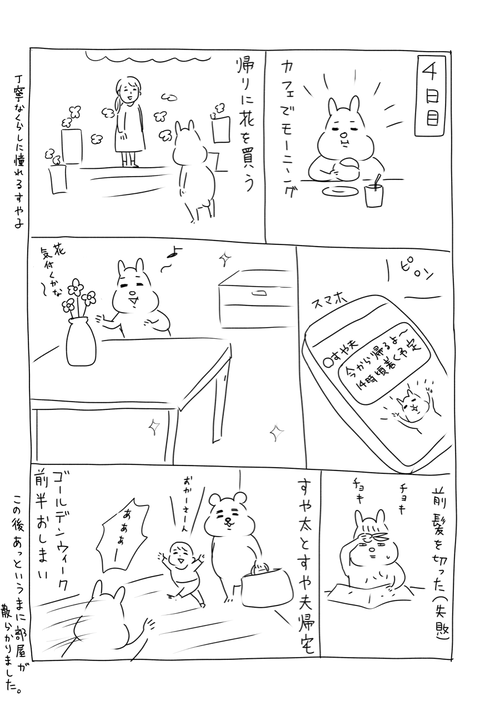 4日目
カフェでモーニング
帰りに花を買う
丁寧なくらしに憧れるすやよ
ピロン
スマホ
すや夫
今から帰るよ〜
14時頃着く予定
花
気付くかな
〜
前髪を切った(失敗)
チョキ
チョキ
すや太とすや夫帰宅
おかーさーん
あぁぁー
ゴールデンウィーク
前半おしまい
この後あっというまに部屋が
散らかりました。